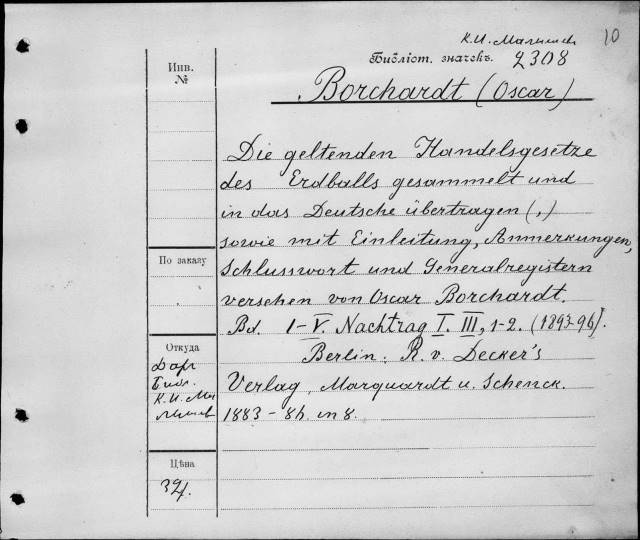 К. И. Малышев
10
Библіот. значекъ. 2308
Инв.
№
Borchardt (Oscar)
Die geltenden Handelsgesetze
des Erdballs gesammelt und
in das Deutsche übertragen (,)
sowie mit Einleitung, Anmerkungen,
Schlusswort und Generalregistern
versehen von Oscar Borchardt.
Bd. I–V. Nachtrag I. III, 1-2. (1893-96).
Berlin: R. v. Decker's
Verlag, Marquardt u. Schenck.
1883 – in 8.
По заказу
Откуда
Дар
Библ.
К. И. Ма
лышев
Цѣна